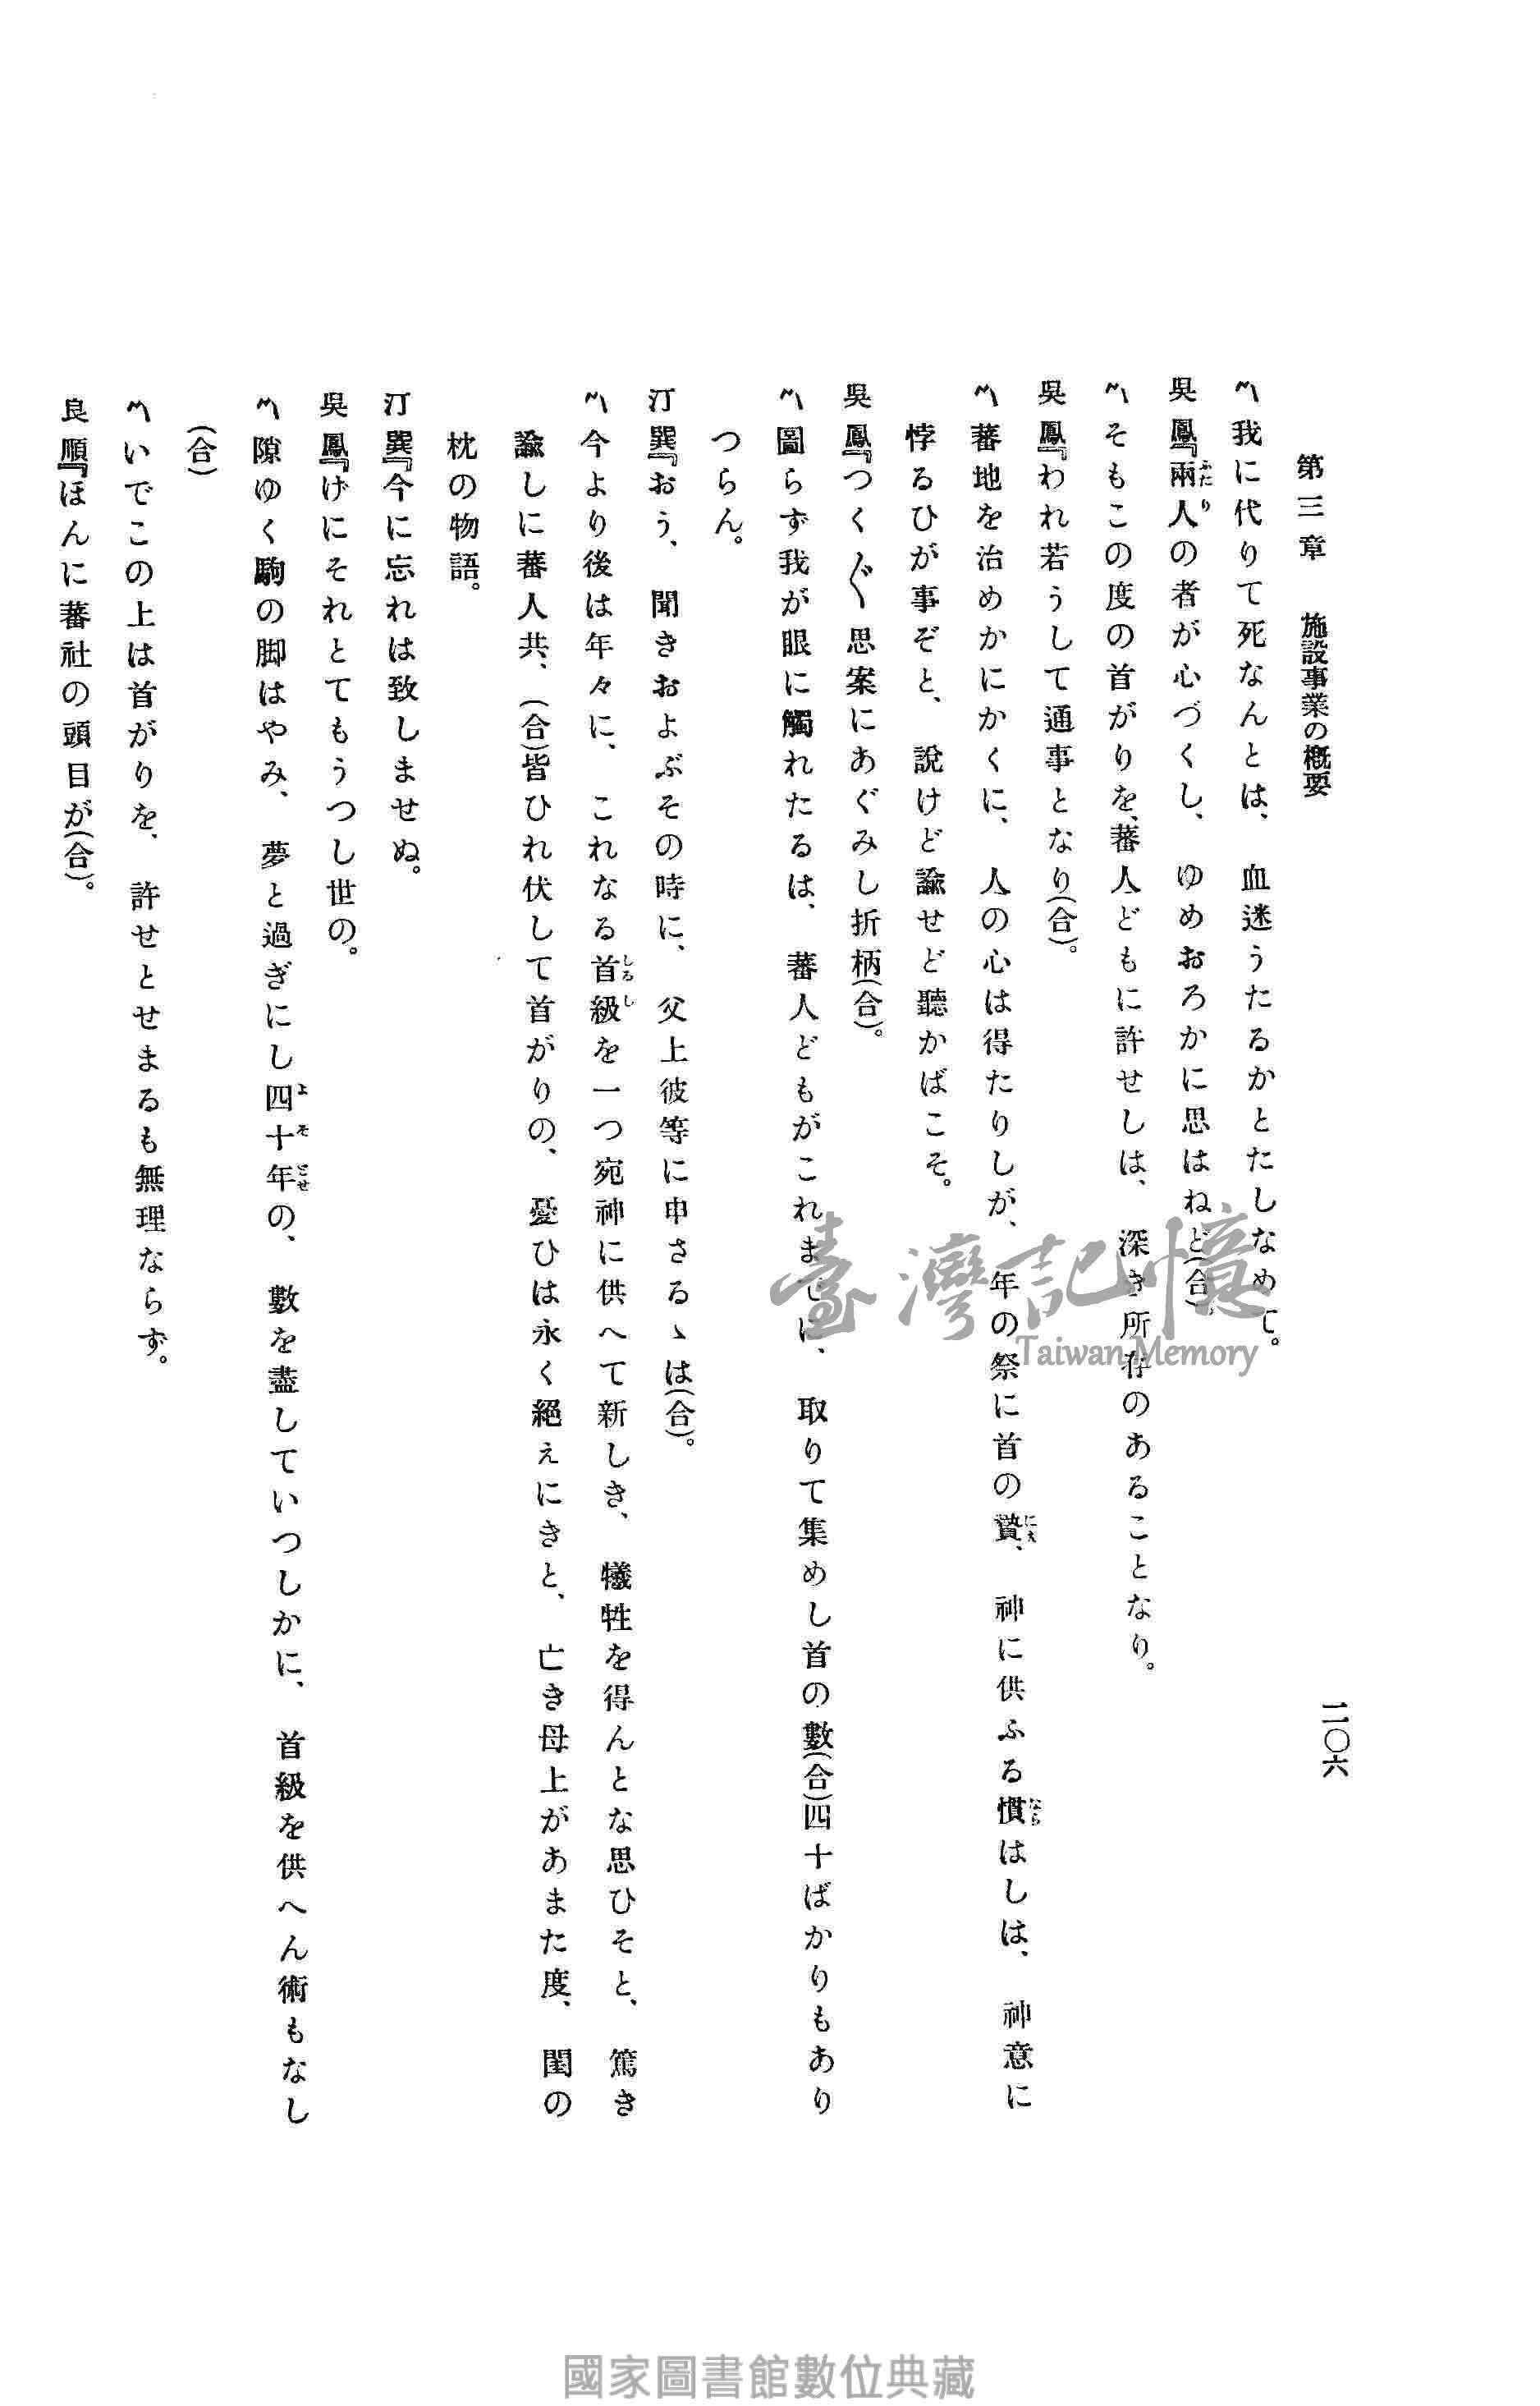 第三章　施設事業の概要
二〇六
〽我に代りて死なんとは、血迷うたるかとたしなめて。
吳鳳『兩人の者が心づくし、ゆめおろかに思はねど(合)。
〽そもこの度の首がりを、蕃人どもに許せしは、深き所存のあることなり。
吳鳳『われ若うして通事となり(合)。
〽蕃地を治めかにかくに、人の心は得たりしが、年の祭に首の贄、神に供ふる慣はしは、神意に
悖るひが事ぞと、說けど諭せど聽かばこそ。
吳鳳『つく〴〵思案にあぐみし折柄(合)。
〽圖らず我が眼に觸れたるは、蕃人どもがこれまでに、取りて集めし首の數(合)四十ばかりもあり
つらん。
汀巽『おう、聞きおよぶその時に、父上彼等に申さるゝは(合)。
〽今より後は年々に、これなる首級を一つ宛神に供へて新しき、犧牲を得んとな思ひそと、篤き
諭しに蕃人共、(合)皆ひれ伏して首がりの、憂ひは永く絕えにきと、亡き母上があまた度、閨の
枕の物語。
汀巽『今に忘れは致しませぬ。
吳鳳『げにそれとてもうつし世の。
〽隙ゆく駒の脚はやみ、夢と過ぎにし四十年の、數を盡していつしかに、首級を供へん術もなし
(合)
〽いでこの上は首がりを、許せとせまるも無理ならず。
良順『ほんに蕃社の頭目が(合)。
臺灣記憶
Taiwan Memory
國家圖書館數位典藏